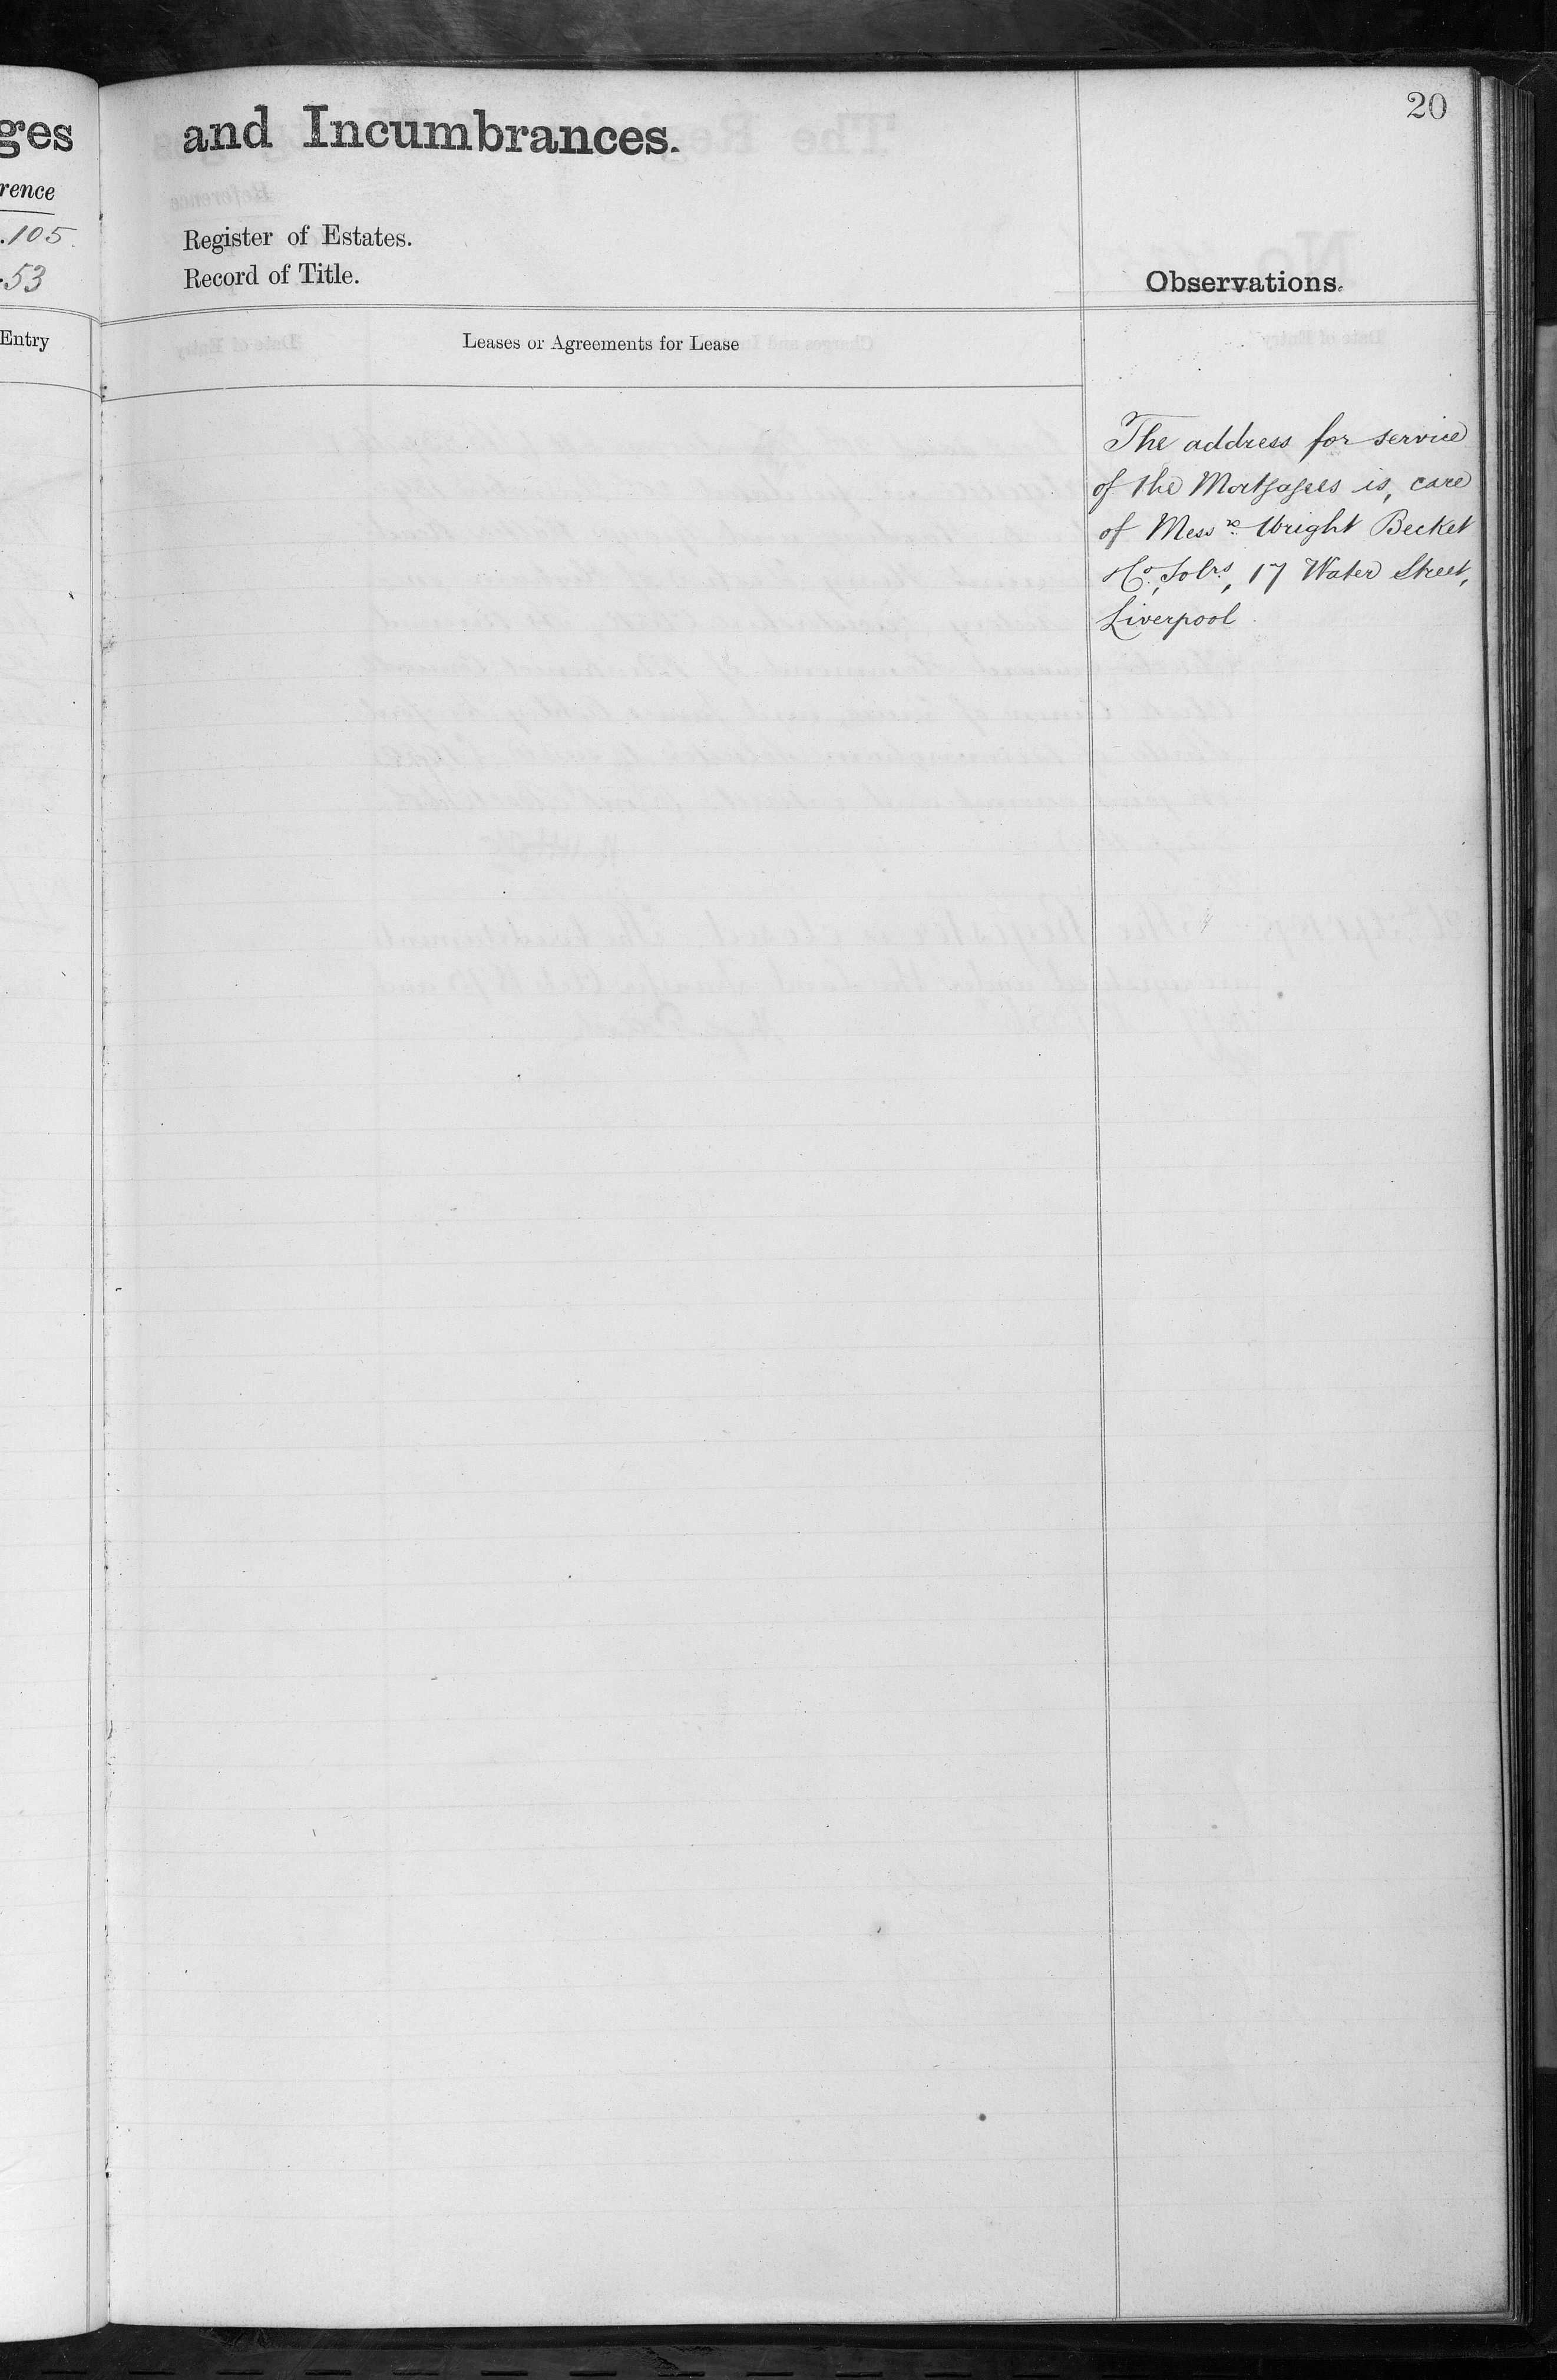 20
ges
and Incumbrances.
rence
.105.
.53
Register of Estates.
Record of Title.
Observations.
Entry
Leases or Agreements for Lease
The address for service
of the Mortgagees is, care
of Messrs. Wright Becket
& Co., Solrs., 17 Water Street,
Liverpool